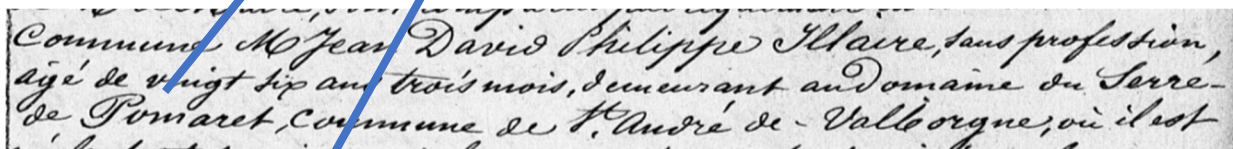 commune M Jean David Philippe Illaire, sans profession,
agé de vingt six ans trois mois, demeurant au Domaine du Serre-
de Pomaret, commune de St. André de - Valborgne, où il est